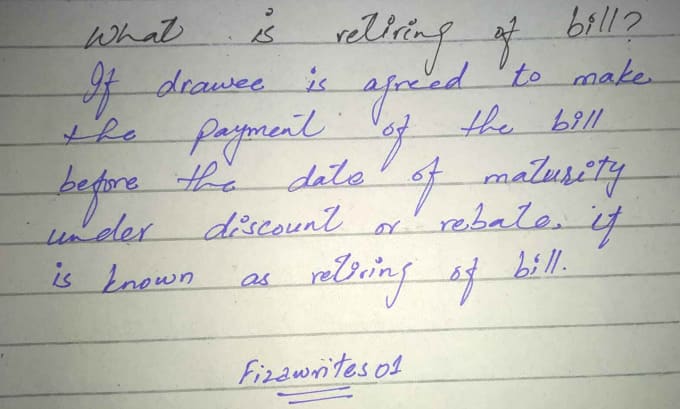 What is retiring of bill?
If drawee is agreed to make
the payment of the bill
before the date of maturity
under discount or rebate. it
is known as retiring of bill.
Fizawrites01